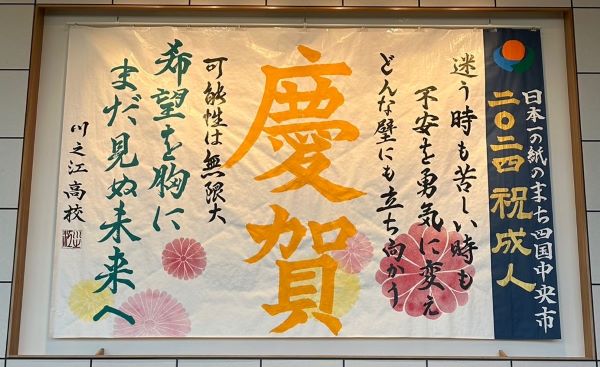 日本一の紙のまち四国中央市
二〇二四 祝成人
迷う時も苦しい時も
不安を勇気に変え
どんな壁にも立ち向かう
慶賀
可能性は無限大
希望を胸に
まだ見ぬ未来へ
川之江高校